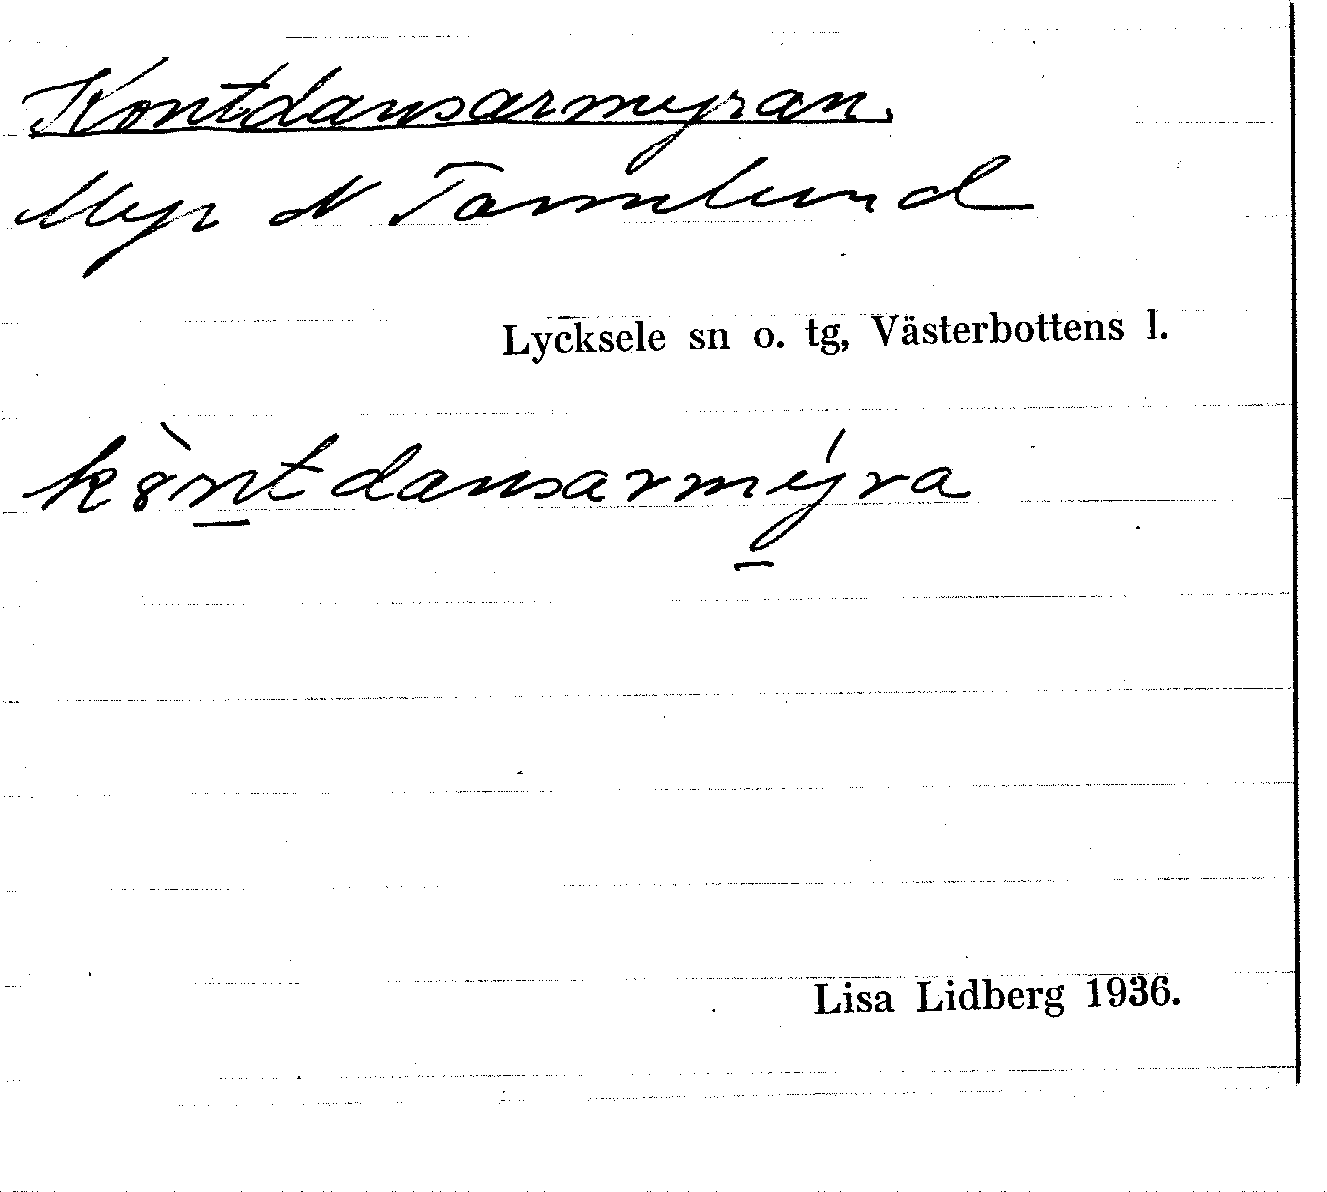 Kontdansarmyran.
Myr N Tannlund
Lycksele sn o. tg, Västerbottens l.
kö̀ntdansarmýra
Lisa Lidberg 1936.